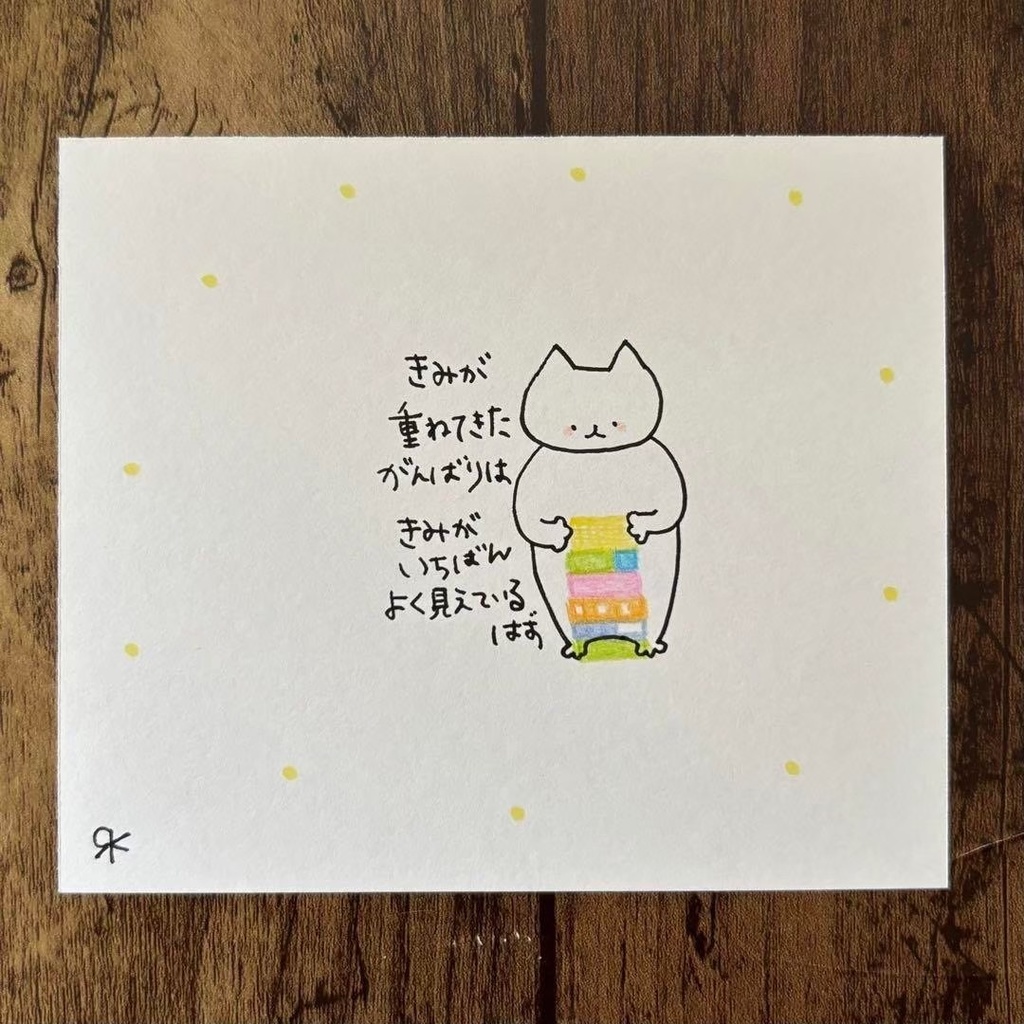 きみが
重ねてきた
がんばりは
きみが
いちばん
よく見えている
はず
RK